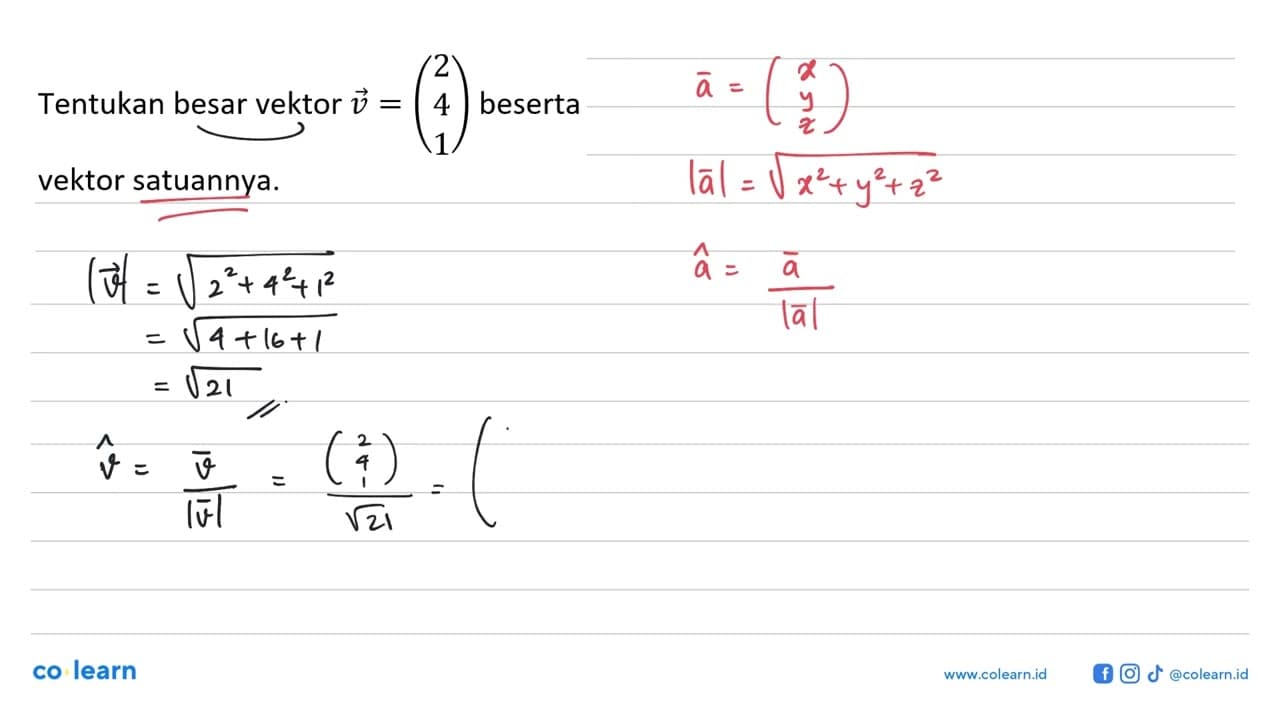 Tentukan besar vektor v⃗ = (2 4 1) beserta
vektor satuannya.
|v⃗| = √(2² + 4² + 1²)
= √(4 + 16 + 1)
= √21
v̂ = v̄ / |v̄| = (2 4 1) / √21 = (
ā = (x y z)
|ā| = √(x² + y² + z²)
â = ā / |ā|
co learn
www.colearn.id
@colearn.id